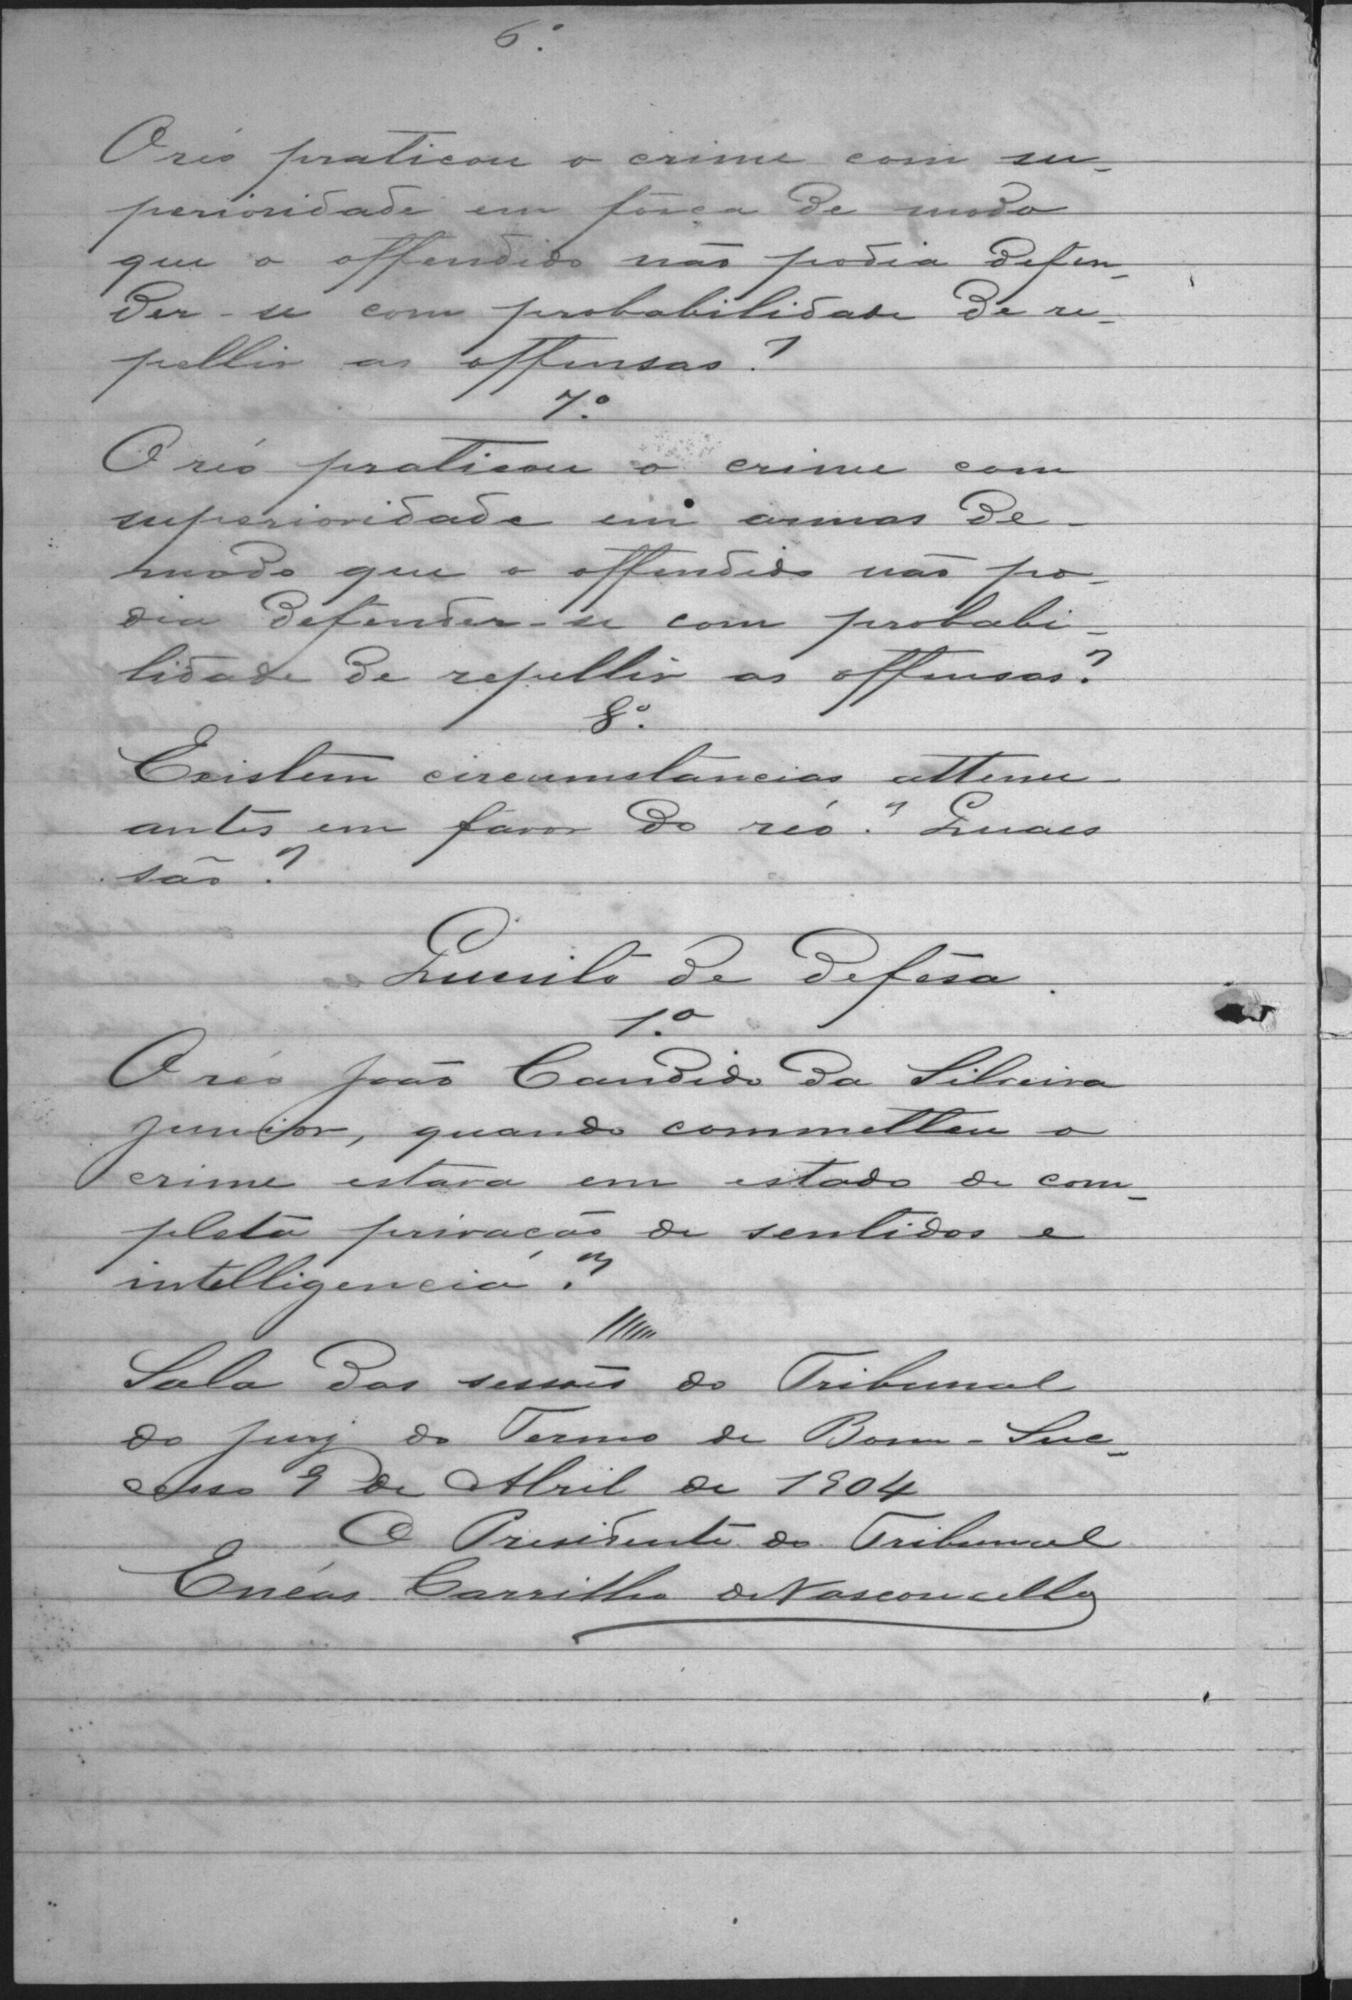 6º.
O réo praticou o crime com su-
perioridade em força de modo
que o offendido não podia defen-
der-se com probabilidade de re-
pellir as offensas?
7º.
O réo praticou o crime com
superioridade em armas de-
modo que o offendido não po-
dia defender-se com probabi-
lidade de repellir as offensas?
8º.
Existem circumstancias attenu-
antes em favor do réo? Quaes
são?
Quesito de defesa.
1º.
O réo João Candido da Silveira
Junior, quando commetteu o
crime estava em estado de com-
pleta privação de sentidos e
intelligencia?
Sala das sessões do Tribunal
do Jury do Termo de Bom-Suc-
cesso 9 de Abril de 1904
O Presidente do Tribunal
Enéas Carrilho de Vasconcellos